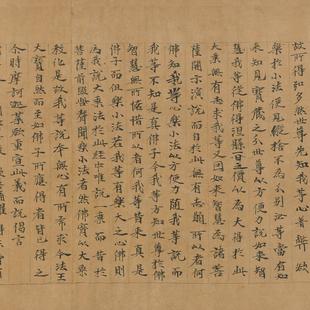 故所得弘多然世尊先知我等心著弊欲
樂於小法便見縱捨不為分別汝等當有如
來知見寶藏之分世尊以方便力說如來智
慧我等從佛得涅槃一日之價以為大得於此
大乘無有志求我等又因如來智慧為諸菩
薩開示演說而自於此無有志願所以者何
佛知我等心樂小法以方便力隨我等說而
我等不知真是佛子今我等方知世尊於佛
智慧無所悋惜所以者何我等昔來真是
佛子而但樂小法若我等有樂大之心佛則
為我說大乘法於此經中唯說一乘而昔於
菩薩前毀呰聲聞樂小法者然佛實以大乘
教化是故我等說本無心有所希求今法王
大寶自然而至如佛子所應得者皆已得之
尒時摩訶迦葉欲重宣此義而說偈言